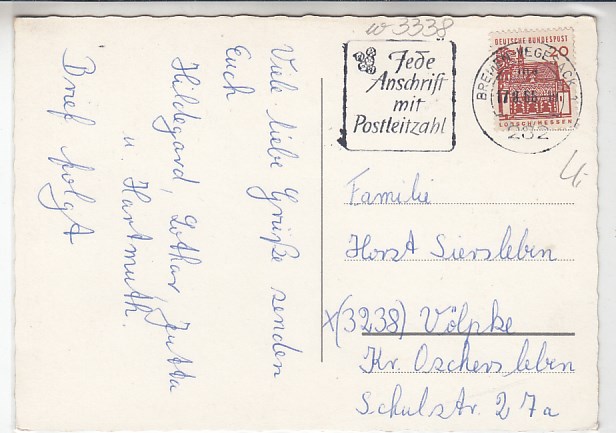 Viele liebe Grüße senden
Euch
Hildegard, Lothar, Jutta
u. Hartmuth.
Brief folgt
w 3338
Jede
Anschrift
mit
Postleitzahl
DEUTSCHE BUNDESPOST
20
LORSCH/HESSEN
BREMEN-VEGESACK
17.8.66
282
4,-
Familie
Horst Siersleben
x(3238) Völpke
Kr. Oschersleben
Schulstr. 27a